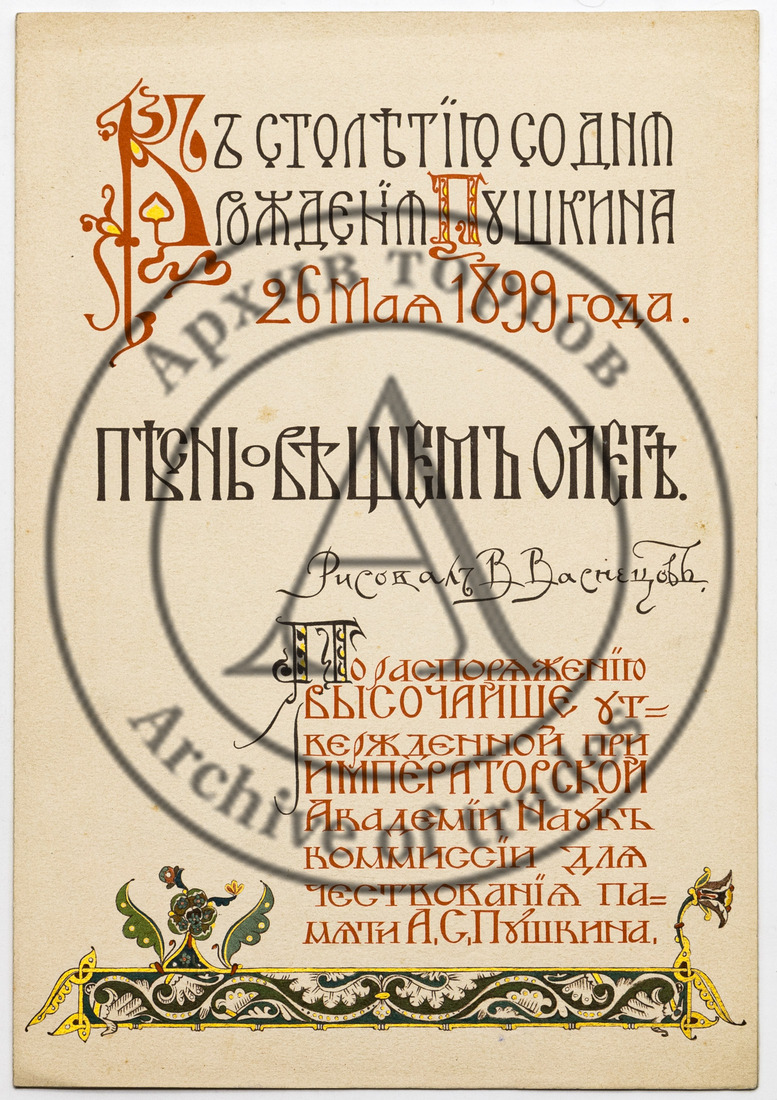 Къ столѣтїю со дня
рожденїя Пушкина
26 Мая 1899 года.
Пѣсньовѣщемъ Олегѣ.
Рисовалъ В Васнецовъ.
По распоряженїю
ВЫСОЧАЙШЕ ут=
вержденной при
ИМПЕРАТОРСКОЙ
Академїи Наукъ
коммиссїи для
чествованїя па=
мяти А.С.Пушкина.
Архив товаров
А
Archive